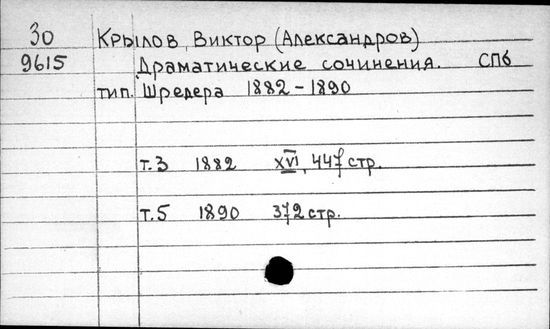 30 Крылов, Виктор (Александров)
9615 Драматические сочинения. СПб
тип. Шредера 1882 – 1890
т.3 1882 XVI, 447 стр.
т.5 1890 372 стр.